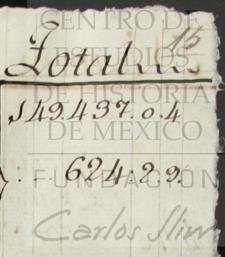 CENTRO DE
ESTUDIOS
DE HISTORIA
DE MÉXICO
FUNDACIÓN
Carlos Slim
13
Total....
$49.437.0.4
624.2.9.